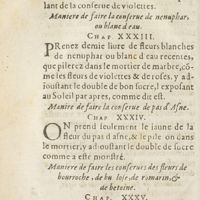 lant de la conserue de violettes.
Maniere de faire la conserue de nenuphar,
ou blanc d'eau.
CHAP XXXIII.
PRenez demie liure de fleurs blanches
de nenuphar ou blanc d'eau recentes,
que pilerez dans le mortier de marbre, cõ-
me les fleurs de violettes & de roses, y ad-
ioustant le double de bon sucre, l'exposant
au Soleil par apres, comme dit est.
Maniere de faire la conserue de pas d'Asne.
CHAP XXXIV.
ON prend seulement le jaune de la
fleur du pas d'asne, & le pile on dans
le mortier, y adioustant le double de sucre
comme a esté monstré.
Maniere de faire les conserues des fleurs de
bourroche, de buglose, de romarin, &
de betoine.
CHAP. XXXV.